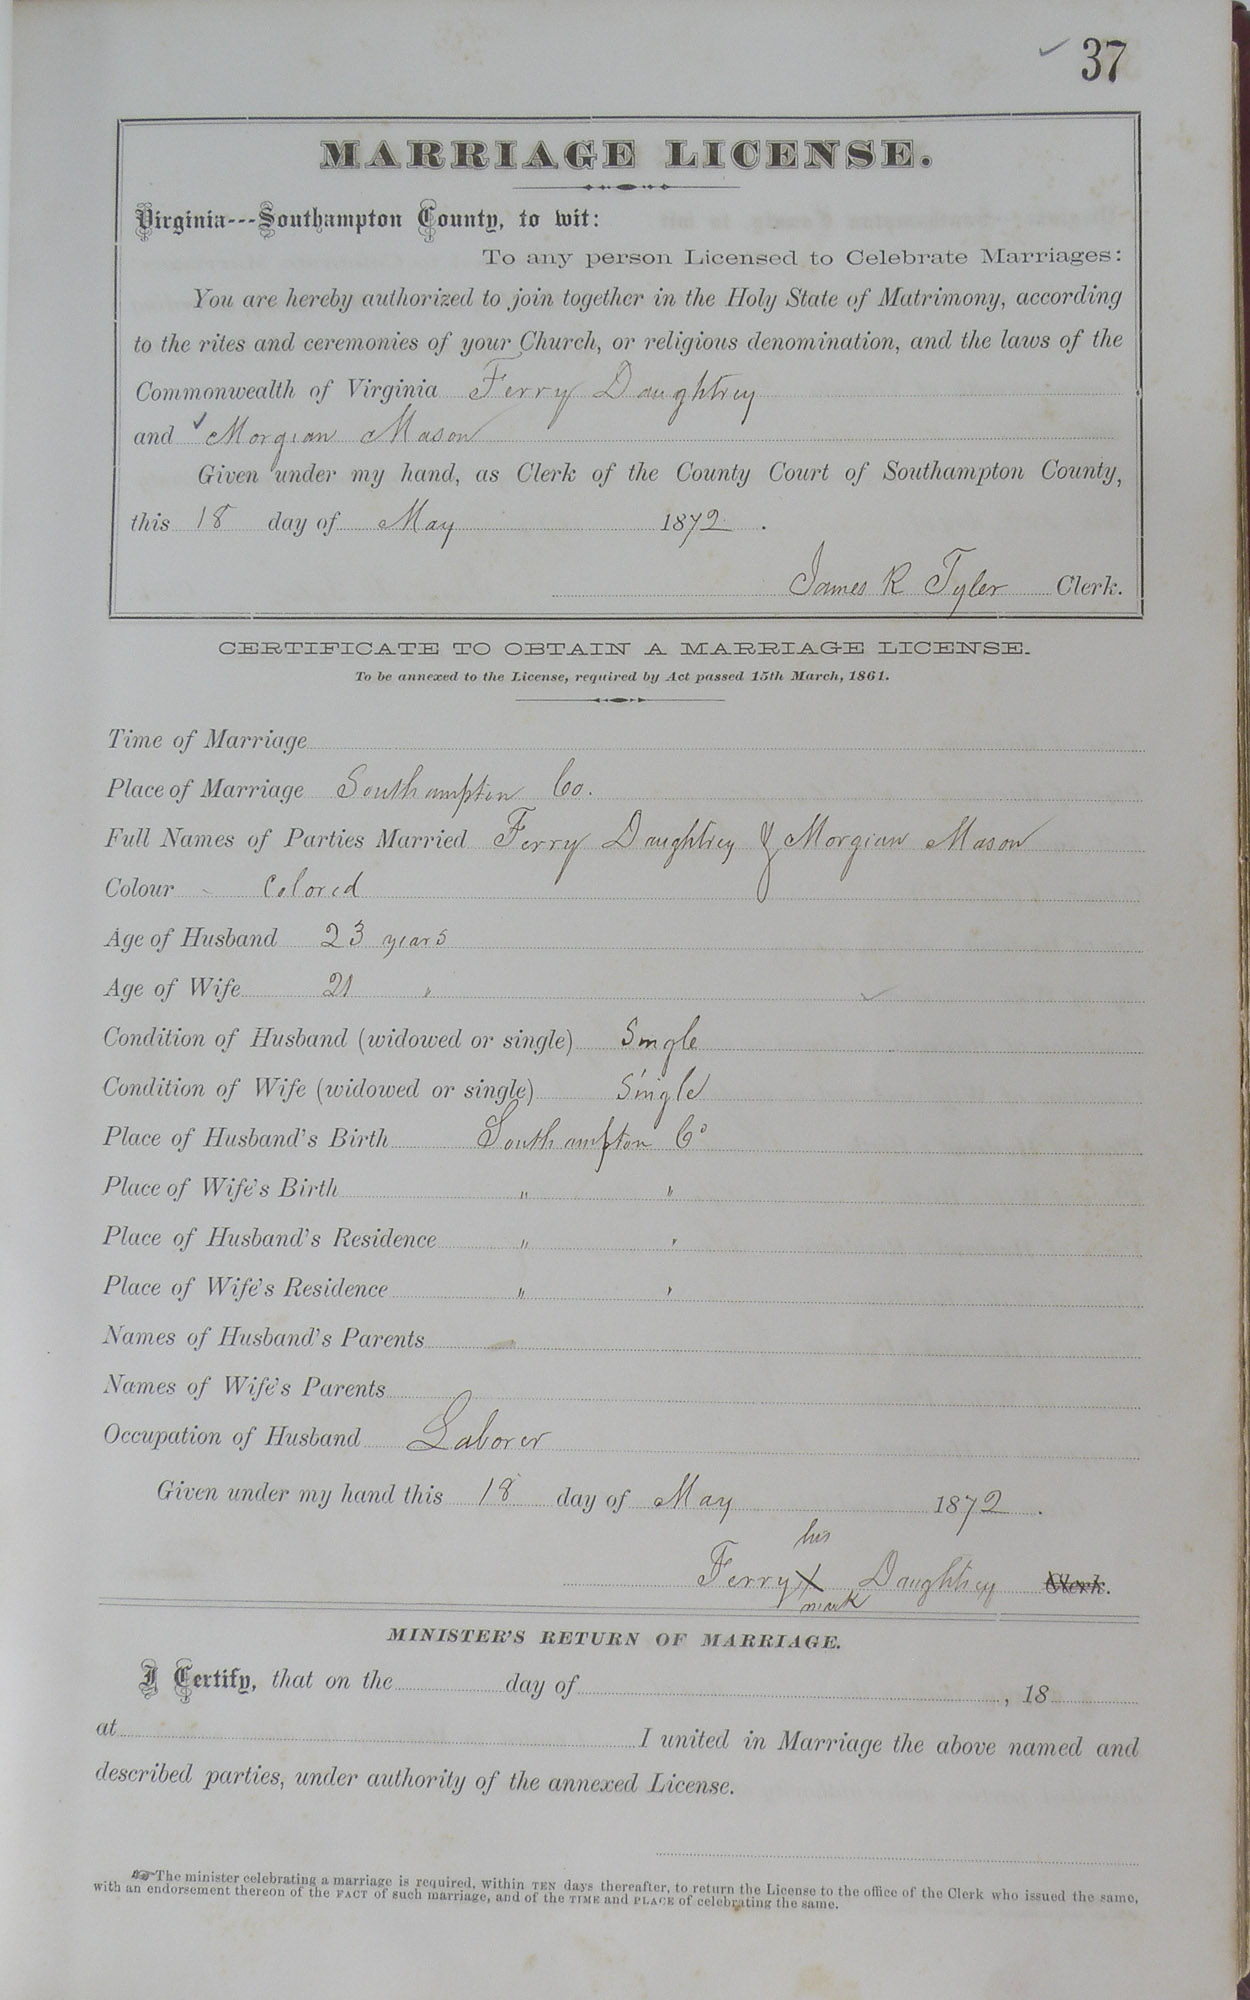 37
MARRIAGE LICENSE.
Virginia---Southampton County, to wit:
To any person Licensed to Celebrate Marriages:
You are hereby authorized to join together in the Holy State of Matrimony, according
to the rites and ceremonies of your Church, or religious denomination, and the laws of the
Commonwealth of Virginia Ferry Daughtrey
and Morgian Mason
Given under my hand, as Clerk of the County Court of Southampton County,
this 18 day of May 1872.
James R Tyler Clerk.
CERTIFICATE TO OBTAIN A MARRIAGE LICENSE.
To be annexed to the License, required by Act passed 15th March, 1861.
Time of Marriage
Place of Marriage Southampton Co.
Full Names of Parties Married Ferry Daughtrey & Morgian Mason
Colour - Colored
Age of Husband 23 years
Age of Wife 21 "
Condition of Husband (widowed or single) Single
Condition of Wife (widowed or single) Single
Place of Husband's Birth Southampton Co
Place of Wife's Birth " "
Place of Husband's Residence " "
Place of Wife's Residence " "
Names of Husband's Parents
Names of Wife's Parents
Occupation of Husband Laborer
Given under my hand this 18 day of May 1872.
his
Ferry X Daughtrey Clerk.
mark
MINISTER'S RETURN OF MARRIAGE.
I Certify, that on the day of , 18
at I united in Marriage the above named and
described parties, under authority of the annexed License.
☞ The minister celebrating a marriage is required, within TEN days thereafter, to return the License to the office of the Clerk who issued the same,
with an endorsement thereon of the FACT of such marriage, and of the TIME and PLACE of celebrating the same.